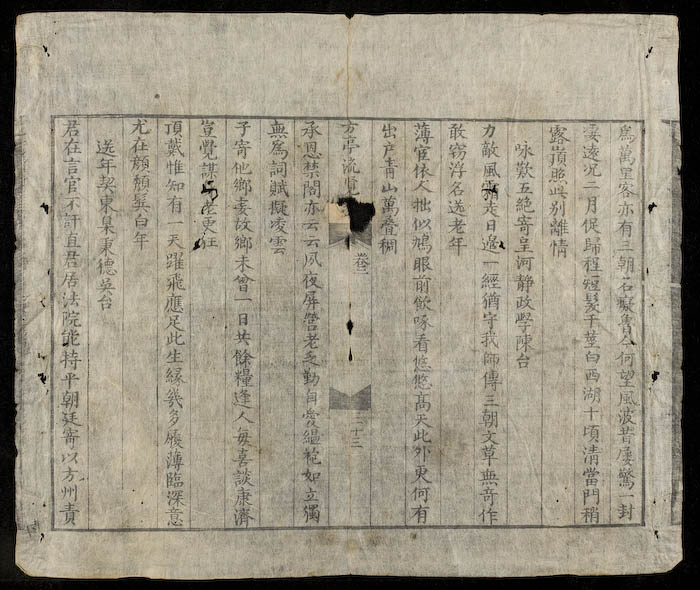 爲萬里客亦有三朝名寮舊今何望風波昔屢驚一封
妄遠況二月促歸程短髮千莖白西湖十頃清當門稍
露嶺照此别離情
詠歎五絶寄呈河静政學陳台
力敵風霜走日邊一經猶守我師傳三朝文草無奇作
敢竊浮名送老年
薄宦依人拙似鳩眼前飲啄看悠悠高天此外更何有
出户青山萬疊稠
方亭流覽
卷三
三十三
承恩禁閤亦云云夙夜屏營老乏勤自愛縕袍如立獨
無爲詞賦擬凌雲
子寄他鄉妾故鄉未曾一日共餘糧逢人每喜談康濟
豈覺謀 老更狂
頂戴惟知有一天躍飛應足此生緣幾多履薄臨深意
尤在頹顏鬂白年
送年契東臬東德吳台
君在言官不訐直君居法院能持平朝廷寄以方州責